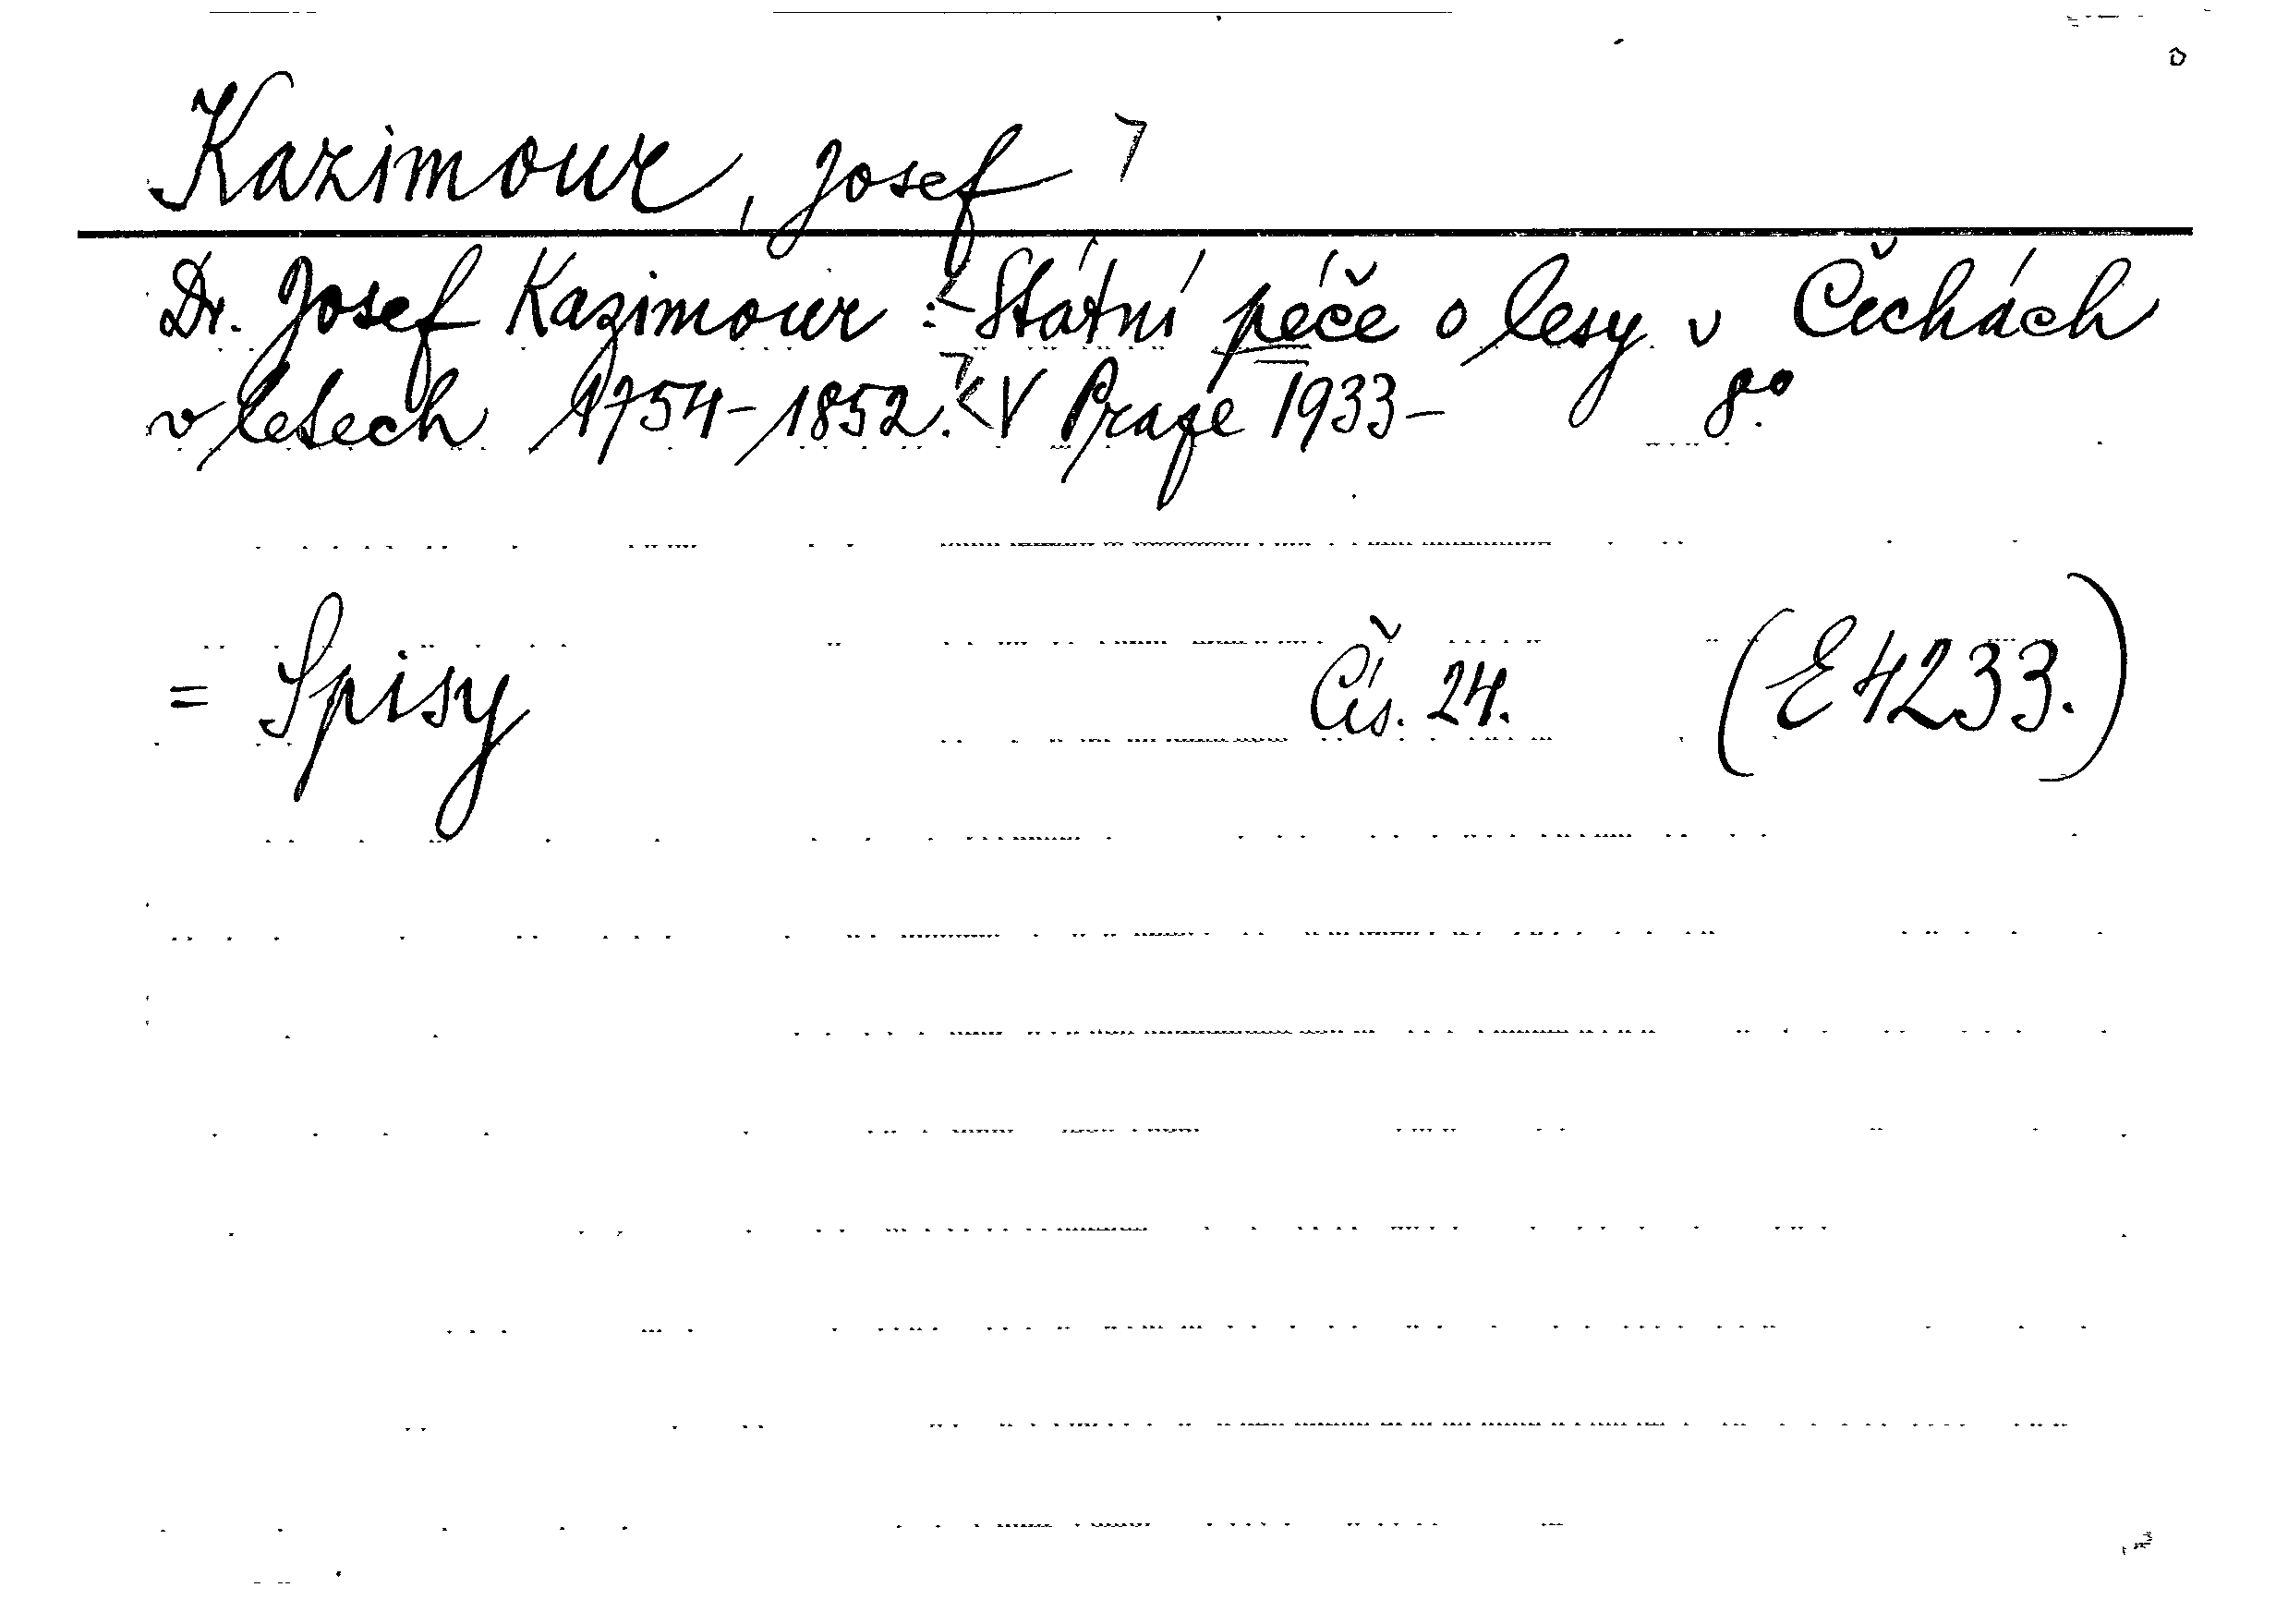 Kazimour, Josef
Dr. Josef Kazimour: Státní péče o lesy v Čechách
v letech 1754-1852. V Praze 1933- 8°.
= Spisy Čís. 24. (E4233.)